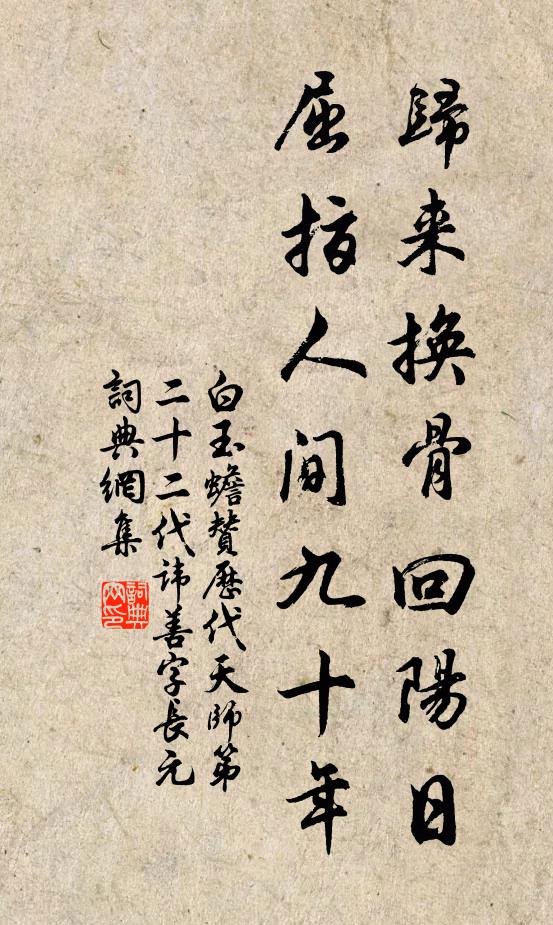 歸来換骨回陽日
屈指人間九十年
白玉蟾贊歷代天師第
二十二代諱善字長元
詞典網集
詞典網印